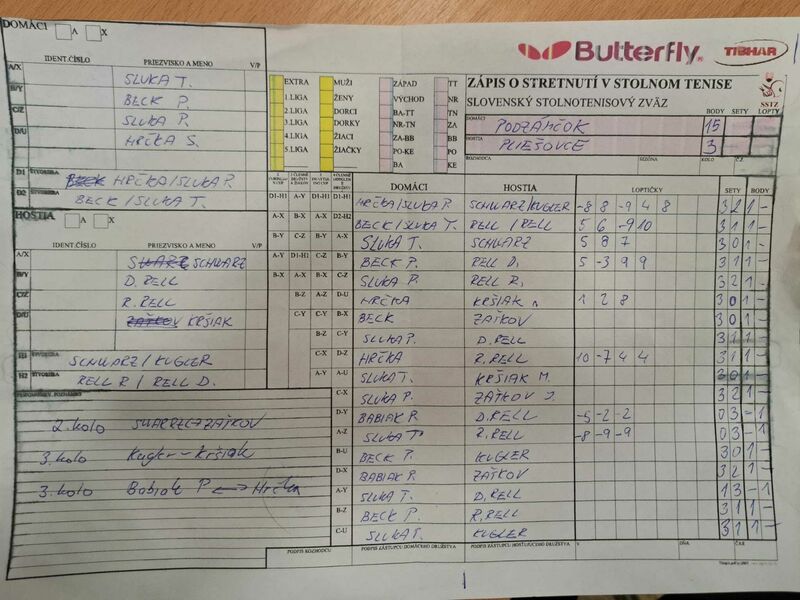 DOMÁCI A X
Butterfly
TIBHAR
IDENT.ČÍSLO PRIEZVISKO A MENO V/P
A/X SLUKA T.
B/Y BECK P.
C/Z SLUKA P.
D/U HRČKA S.
D1 ŠTVORHRA BECK HRČKA/SLUKA P.
D2 ŠTVORHRA BECK/SLUKA T.
EXTRA MUŽI ZÁPAD TT
1.LIGA ŽENY VÝCHOD NR
2.LIGA DORCI BA-TT TN
3.LIGA DORKY NR-TN ZA
4.LIGA ŽIACI ZA-BB BB
5.LIGA ŽIAČKY PO-KE PO
BA KE
ZÁPIS O STRETNUTÍ V STOLNOM TENISE
SLOVENSKÝ STOLNOTENISOVÝ ZVÄZ
SSTZ
BODY SETY LOPTY
DOMÁCI PODZÁMČOK 15
HOSTIA PLIEŠOVCE 3
ROZHODCA SEZÓNA KOLO Č.Z.
HOSTIA A X
IDENT.ČÍSLO PRIEZVISKO A MENO V/P
A/X SWARZ SCHWARZ
B/Y D. RELL
C/Z R. RELL
D/U ZAŤKOV KRŠIAK
H1 ŠTVORHRA SCHWARZ/KUGLER
H2 ŠTVORHRA RELL R/RELL D.
PRIPOMIENKY, POZNÁMKY
2. kolo ZAŤKOV
3. kolo Kugler-Kršiak
3. kolo Babiak P Hrčka
DOMÁCI HOSTIA LOPTIČKY SETY BODY
D1-H1 A-Y D1-H1 D1-H1 HRČKA/SLUKA P. SCHWARZ/KUGLER -8 8 -9 4 8 3 2 1 -
A-X B-X A-X D2-H2 BECK/SLUKA T. RELL/RELL 5 6 -9 10 3 1 1 -
B-Y C-Z B-Y A-X SLUKA T. SCHWARZ 5 8 7 3 0 1 -
A-Y D1-H1 C-Z B-Y BECK P. RELL D. 5 -3 9 9 3 1 1 -
B-X A-X B-X C-Z SLUKA P. RELL R. 3 2 1 -
B-Z A-Z D-U HRČKA KRŠIAK 1 2 8 3 0 1 -
C-Y C-Y B-X BECK ZAŤKOV 3 0 1 -
B-Z C-Y SLUKA P. D.RELL 3 1 1 -
C-X D-Z HRČKA R.RELL 10 -7 4 4 3 1 1 -
A-Y A-U SLUKA T. KRŠIAK M. 3 0 1 -
C-X SLUKA P. ZAŤKOV J. 3 2 1 -
D-Y BABIAK P. D.RELL -5 -2 -2 0 3 - 1
A-Z SLUKA T R.RELL -8 -9 -9 0 3 - 1
B-U BECK P. KUGLER 3 0 1 -
D-X BABIAK P. ZAŤKOV 3 2 1 -
A-Y SLUKA T. D.RELL 1 3 - 1
B-Z BECK P. R.RELL 3 1 1 -
C-U SLUKA P. KUGLER 3 1 1 -
PODPIS ROZHODCU PODPIS ZÁSTUPCU DOMÁCEHO DRUŽSTVA PODPIS ZÁSTUPCU HOSŤUJÚCEHO DRUŽSTVA V DŇA ČAS